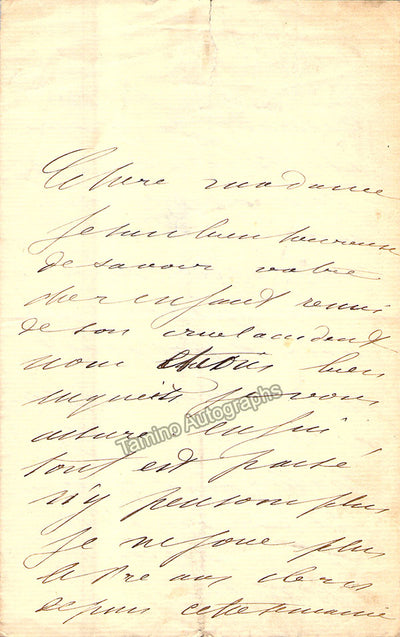 Chère madame
Je suis bien heureuse
de savoir votre
cher enfant remis
de son cruel accident
nous étions bien
inquiets je vous
assure enfin
tout est passé
n'y pensons plus
je ne joue plus
depuis cette semaine
Tamino Autographs